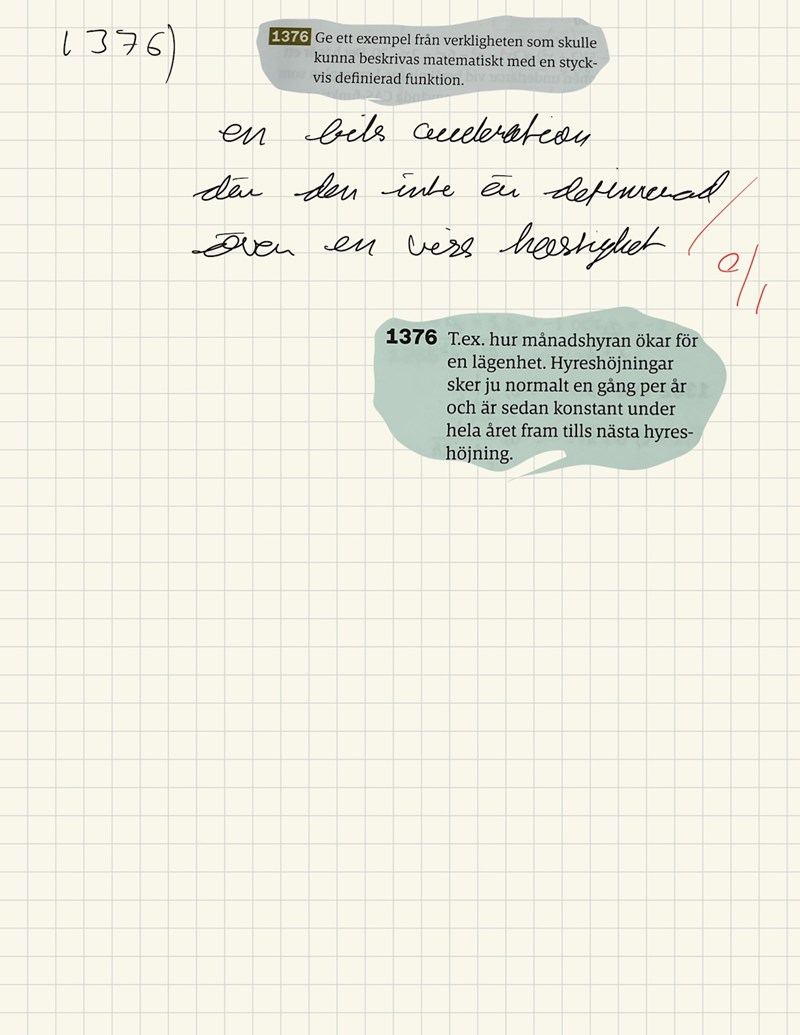 1376)
1376 Ge ett exempel från verkligheten som skulle
kunna beskrivas matematiskt med en styck-
vis definierad funktion.
en bils acceleration
där den inte är definierad
över en viss hastighet
0/1
1376 T.ex. hur månadshyran ökar för
en lägenhet. Hyreshöjningar
sker ju normalt en gång per år
och är sedan konstant under
hela året fram tills nästa hyres-
höjning.